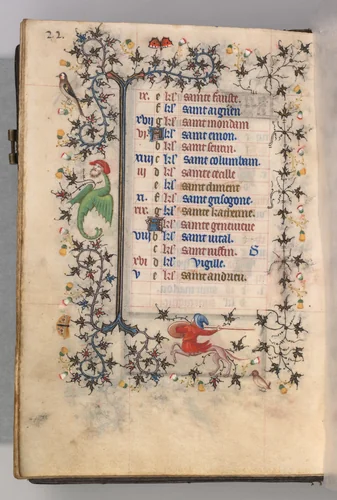 22.
ix. e kl' sainte fauste.
f kl' saint aignen.
xvii g kl' saint mondam
vi A kl' saint emon.
b kl' saint
xiiii c kl' saint columbam.
iii d kl' sainte cecille
e kl' saint climent
xi. f kl' saint grisogone.
xix. g kl' sainte katherine.
A kl' sainte geneuieue
viii b kl' saint vital.
c kl' saint ruffin. S
xvi d kl' vigille.
v e kl' saint andrieu.